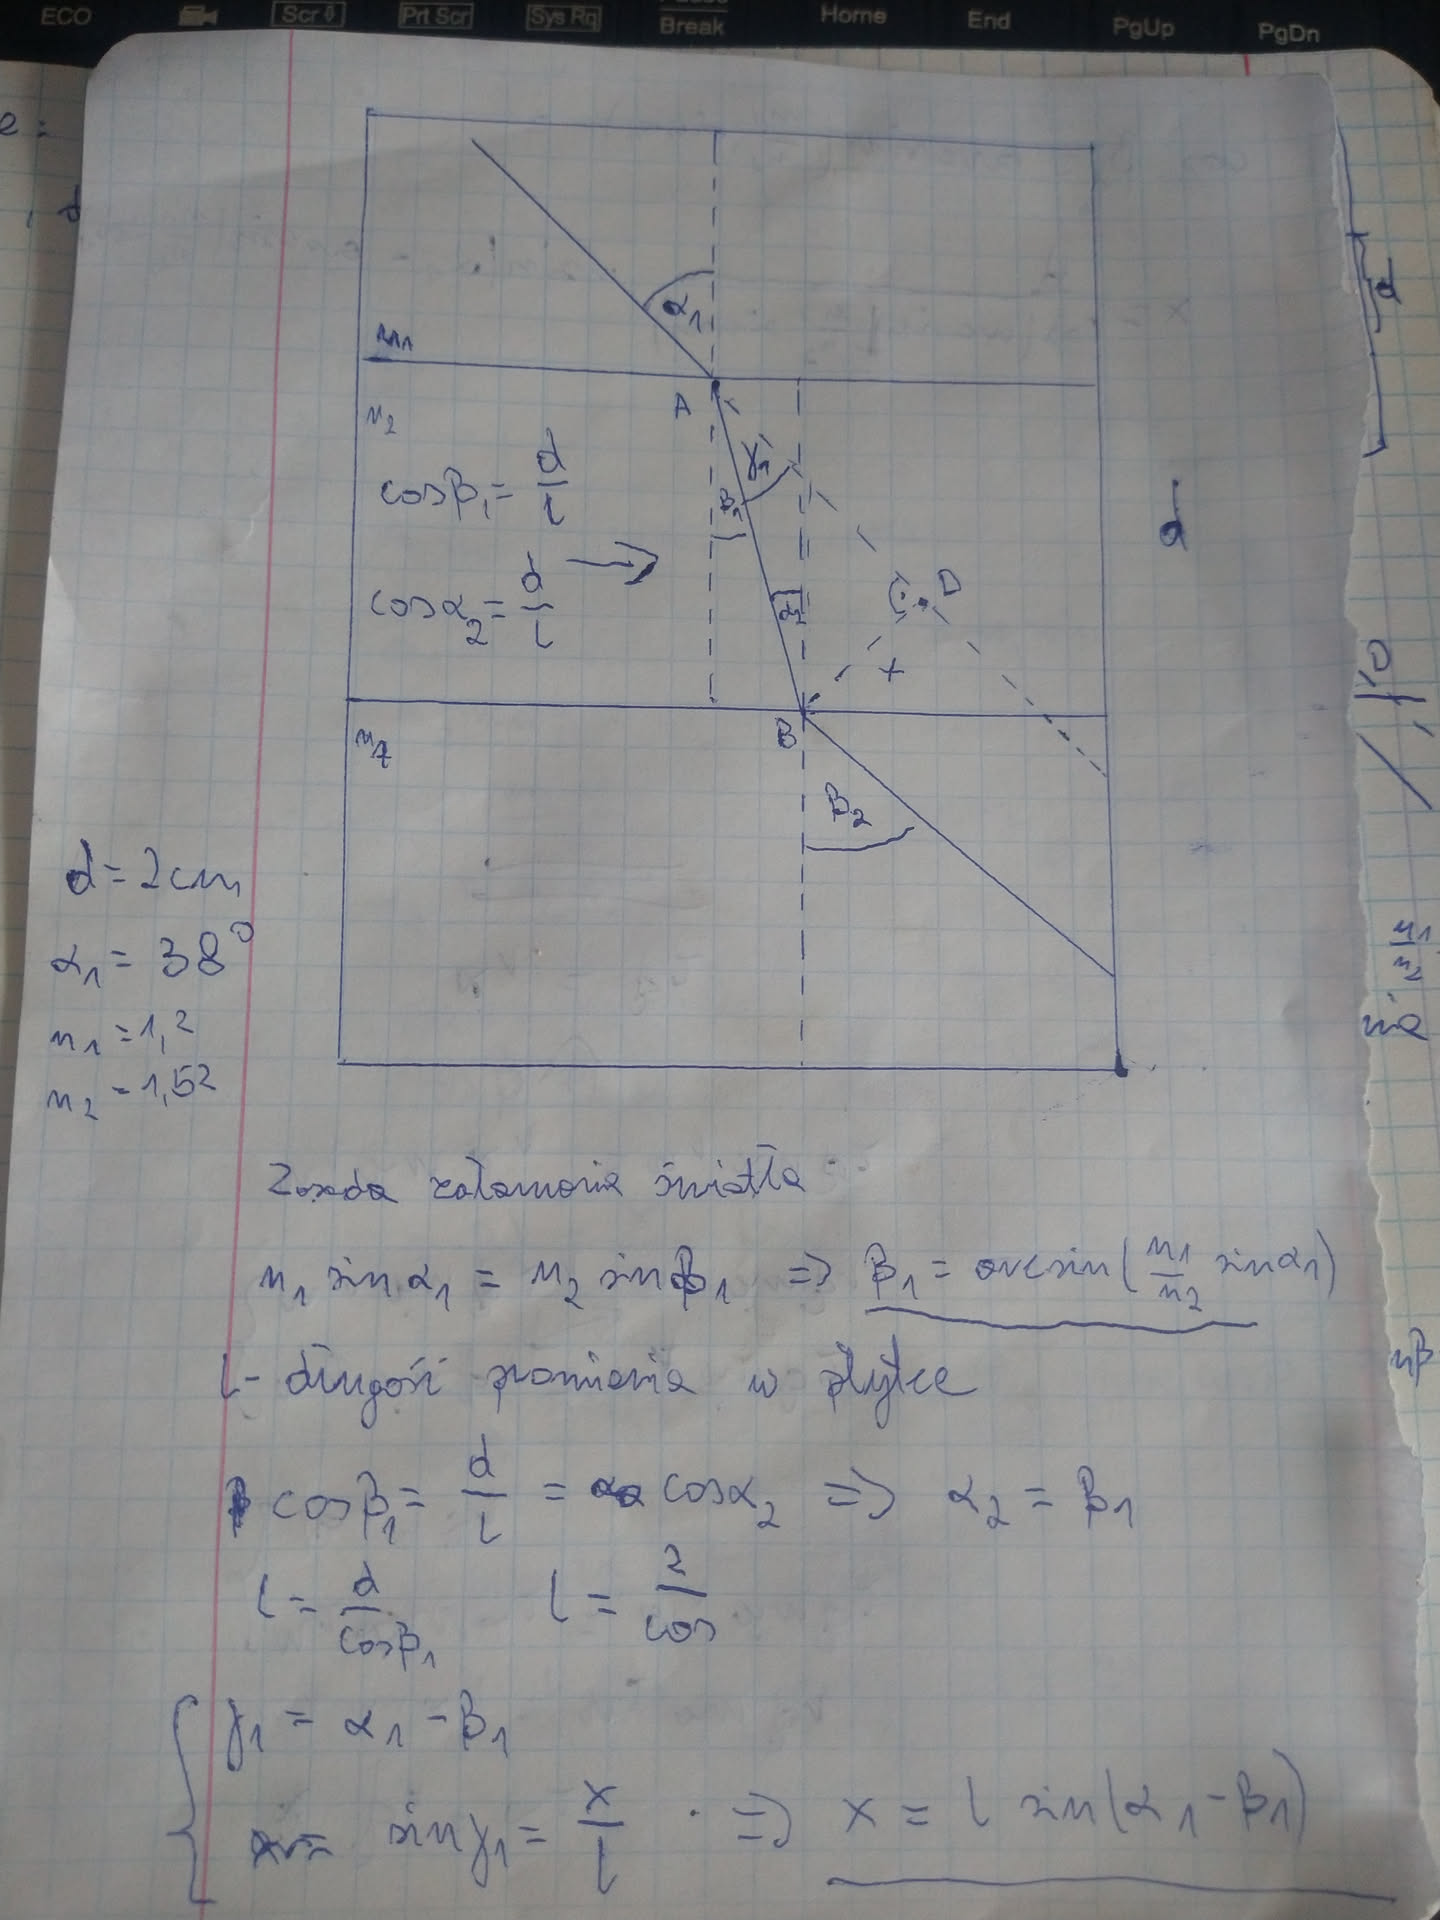 ECO Scr⇩ Prt Scr Sys Rq Break Home End PgUp PgDn
e:
d
α₁
n₁
A
n₂
γ₁
cosβ₁ = d/l
β₁
d
cosα₂ = d/l →
α₂
D
x
B
n₁
β₂
d = 2cm
α₁ = 38°
n₁ = 1,2
n₂ = 1,52
n₁/n₂
Zasada załamania światła
n₁ sinα₁ = n₂ sinβ₁ => β₁ = arcsin(n₁/n₂ sinα₁)
l - długość promienia w płytce
cosβ₁ = d/l = cosα₂ => α₂ = β₁
l = d/cosβ₁ l = 2/cos
γ₁ = α₁ - β₁
sinγ₁ = x/l => x = l sin(α₁ - β₁)